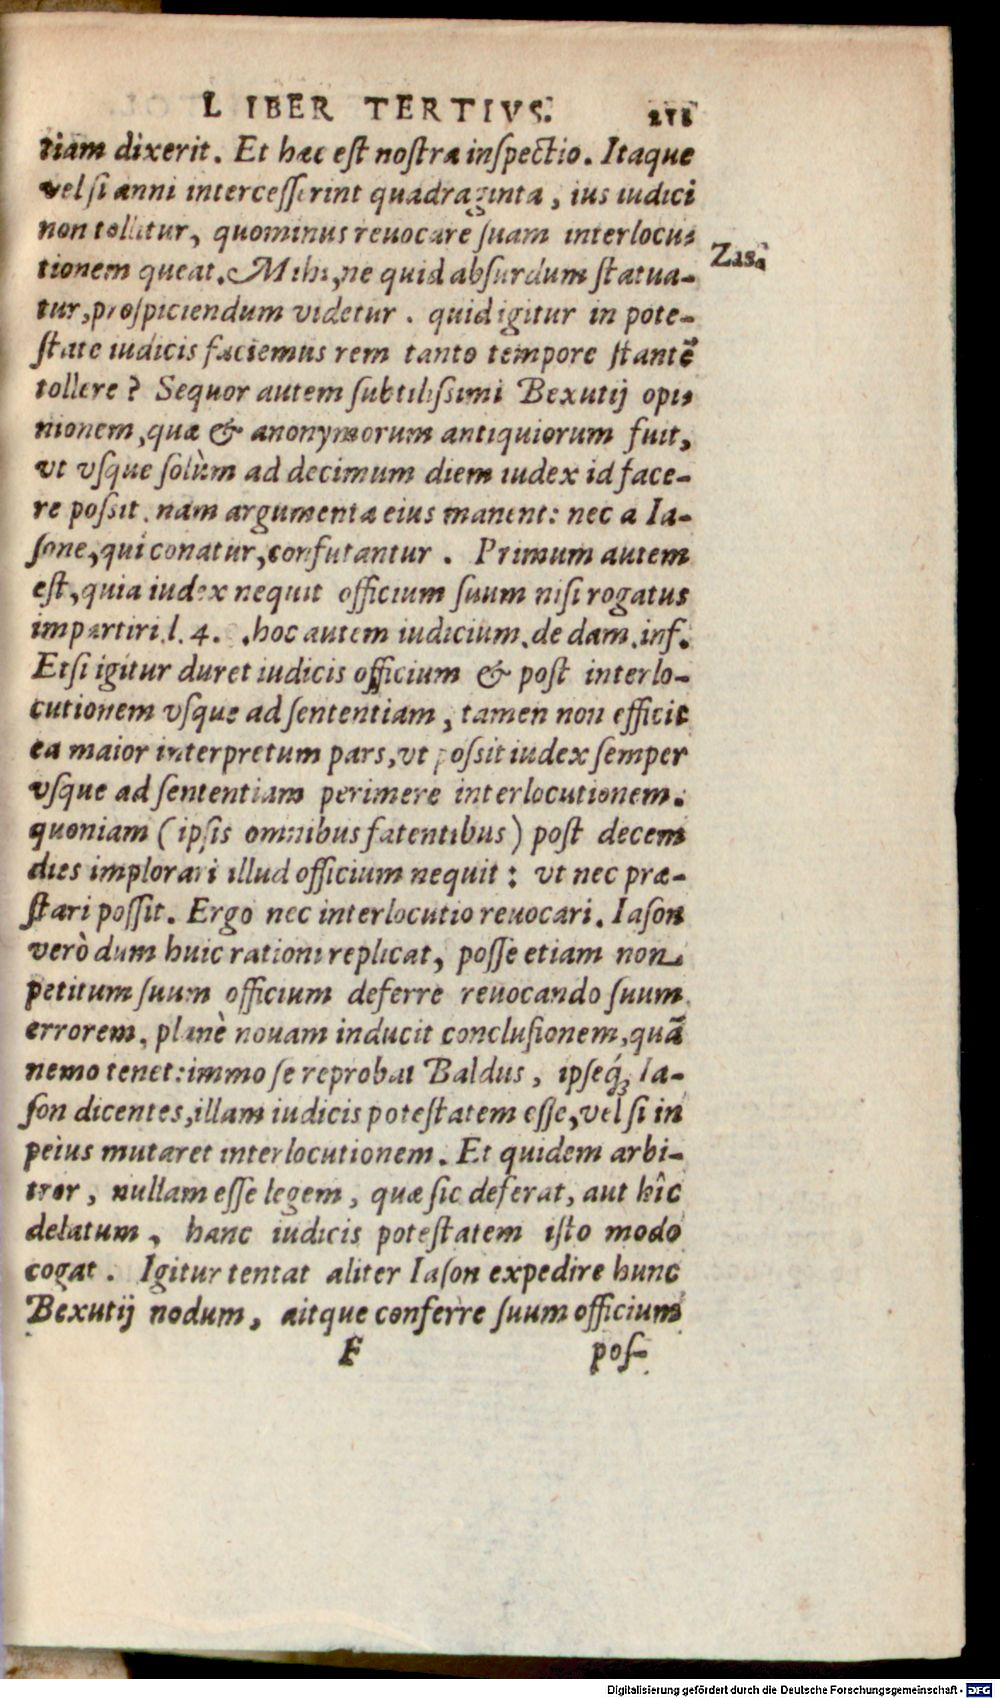 LIBER TERTIVS.
tiam dixerit. Et hæc est nostra inspectio. Itaque
vel si anni intercesserint quadraginta, ius iudici
non tollitur, quominus reuocare suam interlocu-
Zas.
tionem queat. Mihi, ne quid absurdum statua-
tur, prospiciendum videtur. quid igitur in pote-
state iudicis faciemus rem tanto tempore stantẽ
tollere? Sequor autem subtilissimi Bexutij opi-
nionem, quæ & anonymorum antiquiorum fuit,
vt vsque solùm ad decimum diem iudex id face-
re possit. nam argumenta eius manent: nec a Ia-
sone, qui conatur, confutantur. Primum autem
est, quia iudex nequit officium suum nisi rogatus
impartiri. l. 4. §. hoc autem iudicium. de dam. inf.
Etsi igitur duret iudicis officium & post interlo-
cutionem vsque ad sententiam, tamen non efficit
ea maior interpretum pars, vt possit iudex semper
vsque ad sententiam perimere interlocutionem.
quoniam (ipsis omnibus fatentibus) post decem
dies implorari illud officium nequit: vt nec præ-
stari possit. Ergo nec interlocutio reuocari. Iason
verò dum huic rationi replicat, posse etiam non
petitum suum officium deferre reuocando suum
errorem, planè nouam inducit conclusionem, quã
nemo tenet: immo se reprobat Baldus, ipseq́; Ia-
son dicentes, illam iudicis potestatem esse, vel si in
peius mutaret interlocutionem. Et quidem arbi-
tror, nullam esse legem, quæ sic deferat, aut hîc
delatum, hanc iudicis potestatem isto modo
cogat. Igitur tentat aliter Iason expedire hunc
Bexutij nodum, aitque conferre suum officium
F pos-
Digitalisierung gefördert durch die Deutsche Forschungsgemeinschaft - DFG